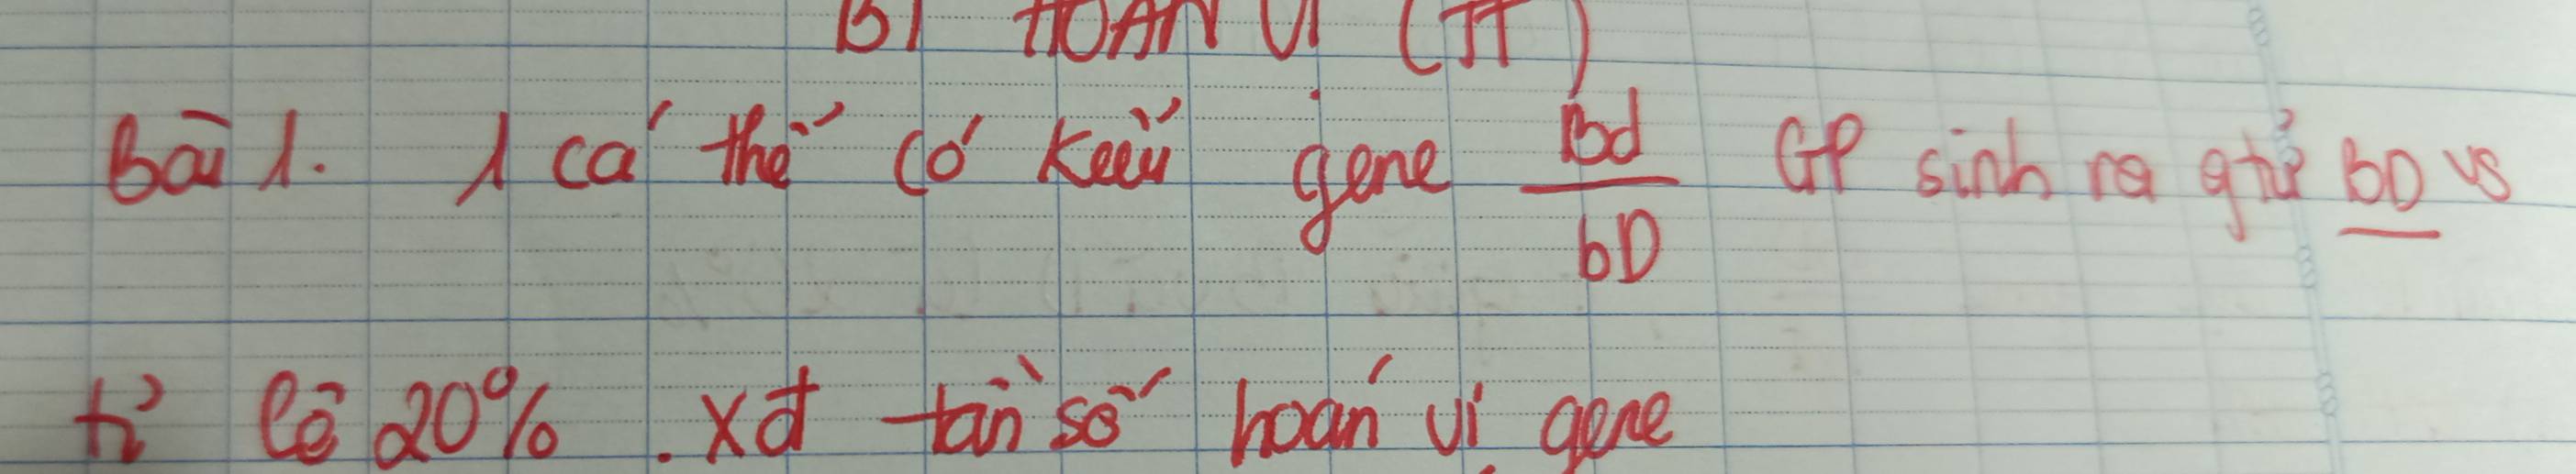 B) HOÁN VỊ (TT)
Bài 1. 1 cá thể có kiểu gene Bd/bD GP sinh ra gtử BD vs
tỉ lệ 20%. Xđ tần số hoán vị gene